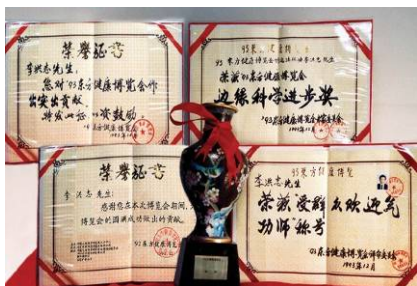 荣誉证书
李洪志先生:
您对'93东方健康博览会作
出突出贡献,
特发此证 以资鼓励
'93东方健康博览会
1993年12月
93东方健康博览
荣获'93东方健康博览会
边缘科学进步奖
'93东方健康博览会
1993年12月
荣誉证书
李洪志先生:
感谢您在本次博览会期间,
博览会的圆满成功做出的贡献。
93东方健康博览会
93东方健康博览
李洪志先生
荣获受群众欢迎气
功师"称号
'93东方健康博览会
1993年12月